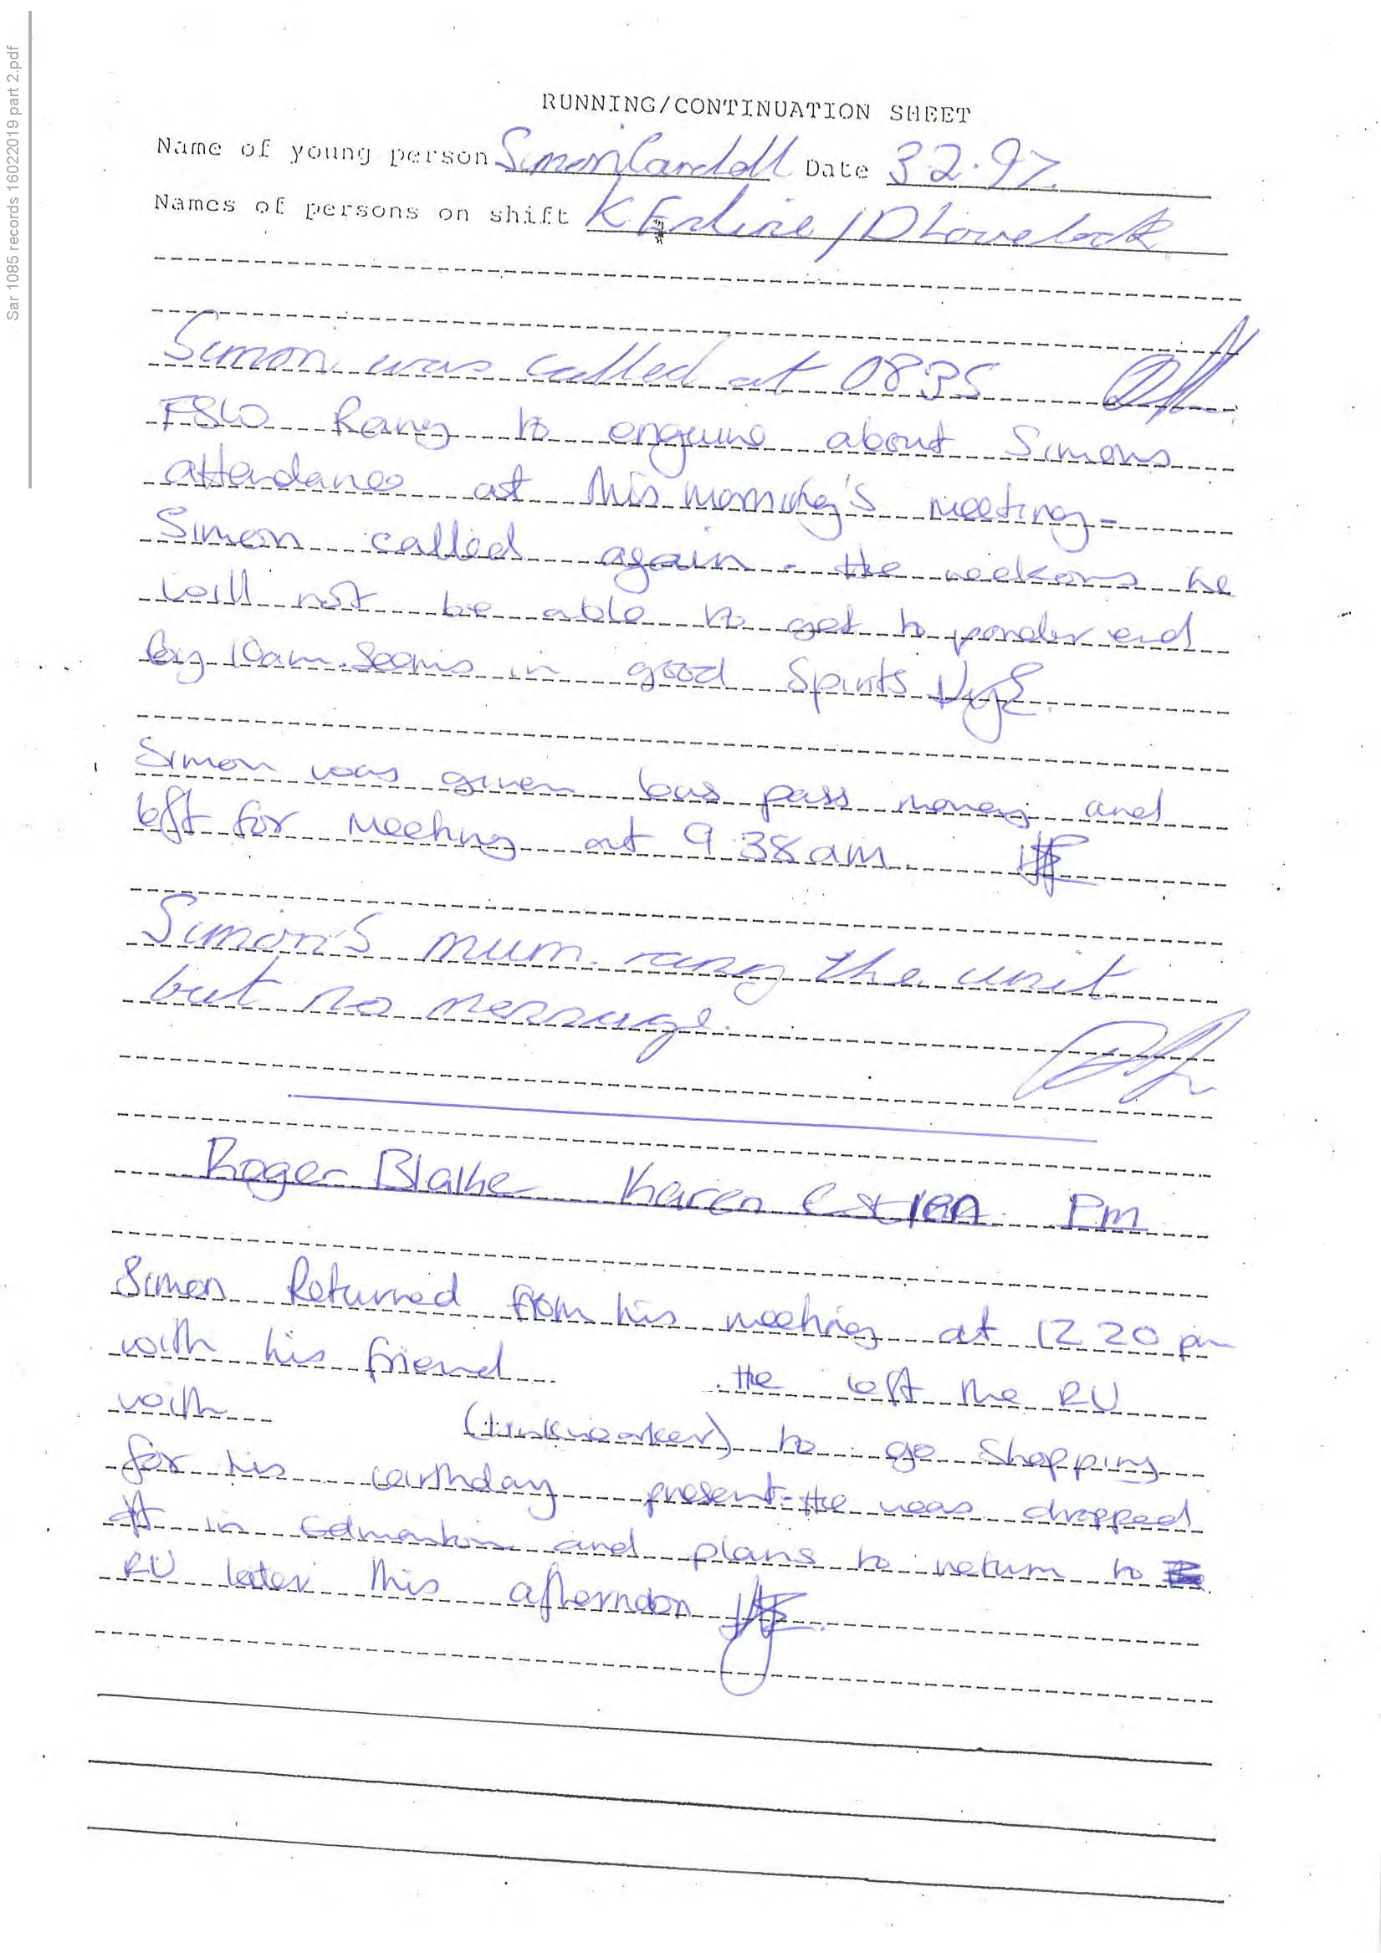 Sar 1085 records 16022019 part 2.pdf
RUNNING/CONTINUATION SHEET
Name of young person Simon Cardell Date 3.2.97
Names of persons on shift K / D Lovelock
Simon was called at 0835
FSLO Rang to enquire about Simons
attendance at this morning's meeting-
Simon called again - He reckons he
will not be able to get to ponders end
by 10am. Seems in good Spirits
Simon was given bus pass money and
left for meeting at 9 38am.
Simon's mum rang the unit
but no message.
Roger Blake Karen Pm
Simon Returned from his meeting at 12 20 pm
with his friend . He left the RU
with (linkworker) to go Shopping
for his birthday present - He was dropped
in Edmonton and plans to return to
RU later this afternoon